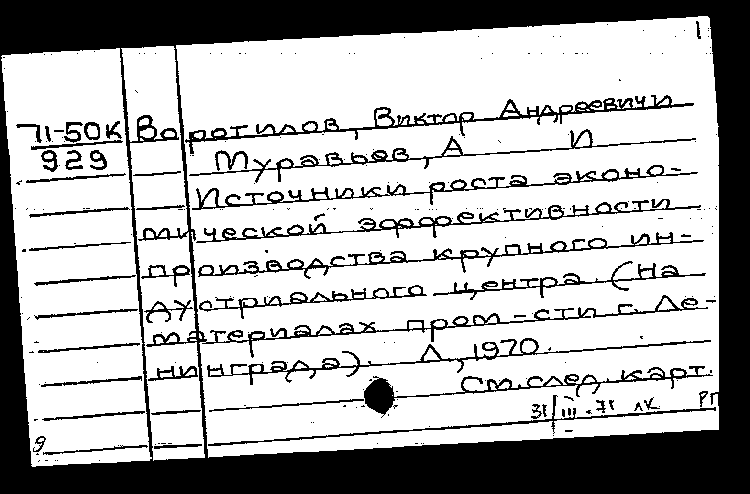 1
71-50К Воротилов, Виктор Андреевич и
929 Муравьев, А И
Источники роста эконо-
мической эффективности
производства крупного ин-
дустриального центра. (На
материалах пром-сти г. Ле-
нинграда). Л., 1970.
См. след. карт.
31/III-71 лк РП
9